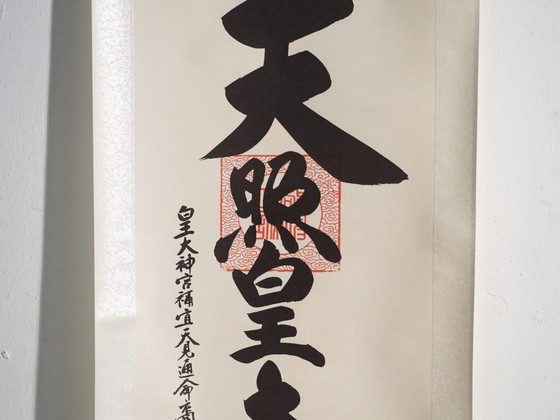 天照皇大
皇大神宮補宜天見通命